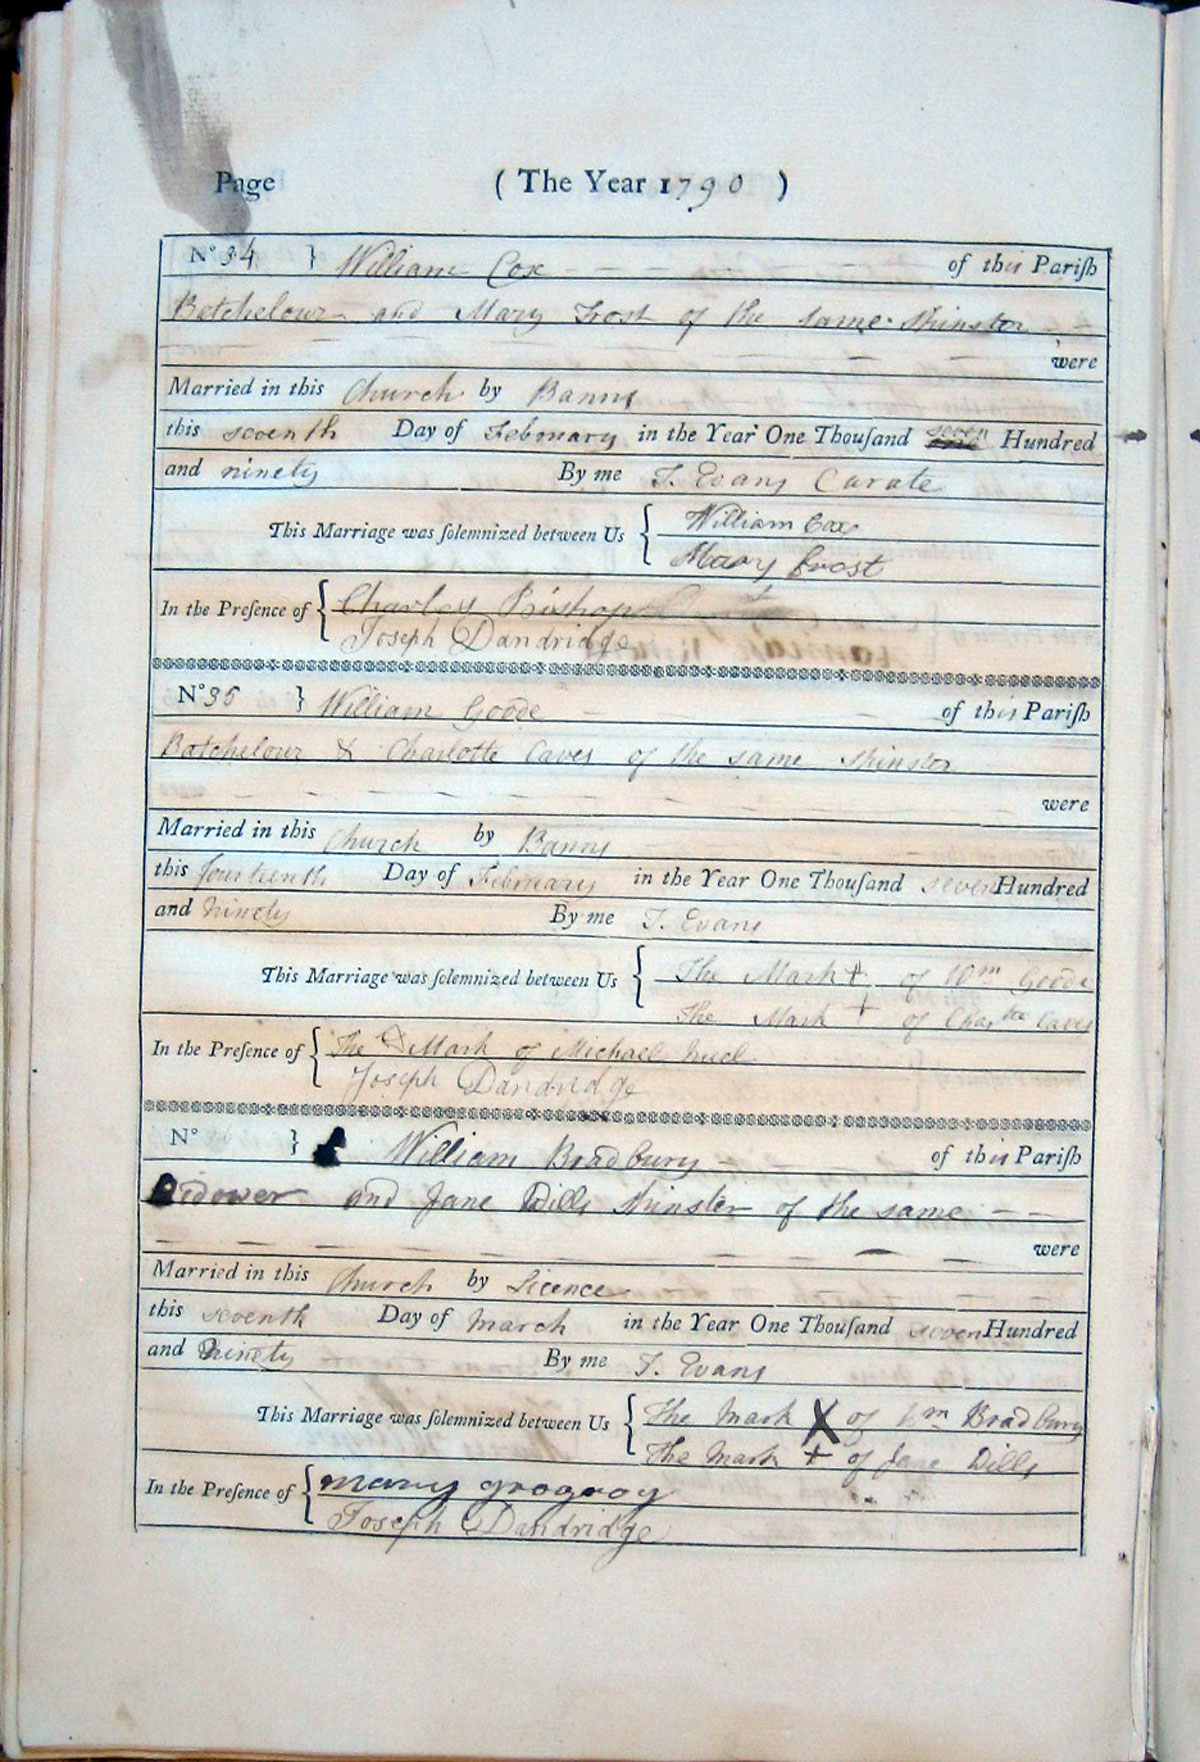 Page (The Year 1790)
No 34 } William Cox of this Pariſh
Batchelour and Mary Frost of the same Spinster
were
Married in this Church by Banns
this seventh Day of February in the Year One Thouſand seven Hundred
and ninety By me T. Evans Curate
This Marriage was ſolemnized between Us { William Cox
Mary Frost
In the Preſence of { Charles Bishop
Joseph Dandridge
No 35 } William Goode of this Pariſh
Batchelour & Charlotte Caves of the same Spinster
were
Married in this Church by Banns
this fourteenth Day of February in the Year One Thouſand seven Hundred
and ninety By me T. Evans
This Marriage was ſolemnized between Us { The Mark + of Wm Goode
The Mark + of Chartte Caves
In the Preſence of { The Mark of Michael
Joseph Dandridge
No } William Bradbury of this Pariſh
Widower and Jane Dills Spinster of the same
were
Married in this Church by Licence
this seventh Day of March in the Year One Thouſand seven Hundred
and Ninety By me T. Evans
This Marriage was ſolemnized between Us { The Mark X of Wm Bradbury
The Mark + of Jane Dills
In the Preſence of { mary
Joseph Dandridge